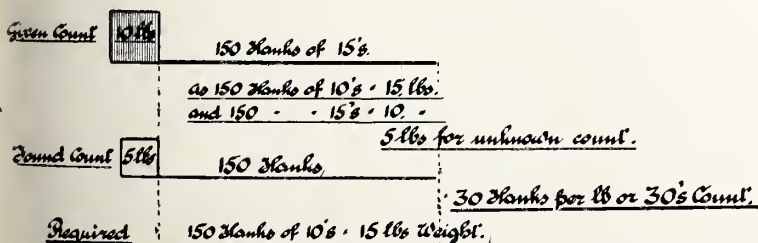 Given Count 10 lbs
150 Hanks of 15's.
as 150 Hanks of 10's = 15 lbs.
and 150 - - 15's = 10. -
5 lbs for unknown count.
Found Count 5 lbs
150 Hanks,
= 30 Hanks per lb or 30's Count.
Required 150 Hanks of 10's = 15 lbs Weight.